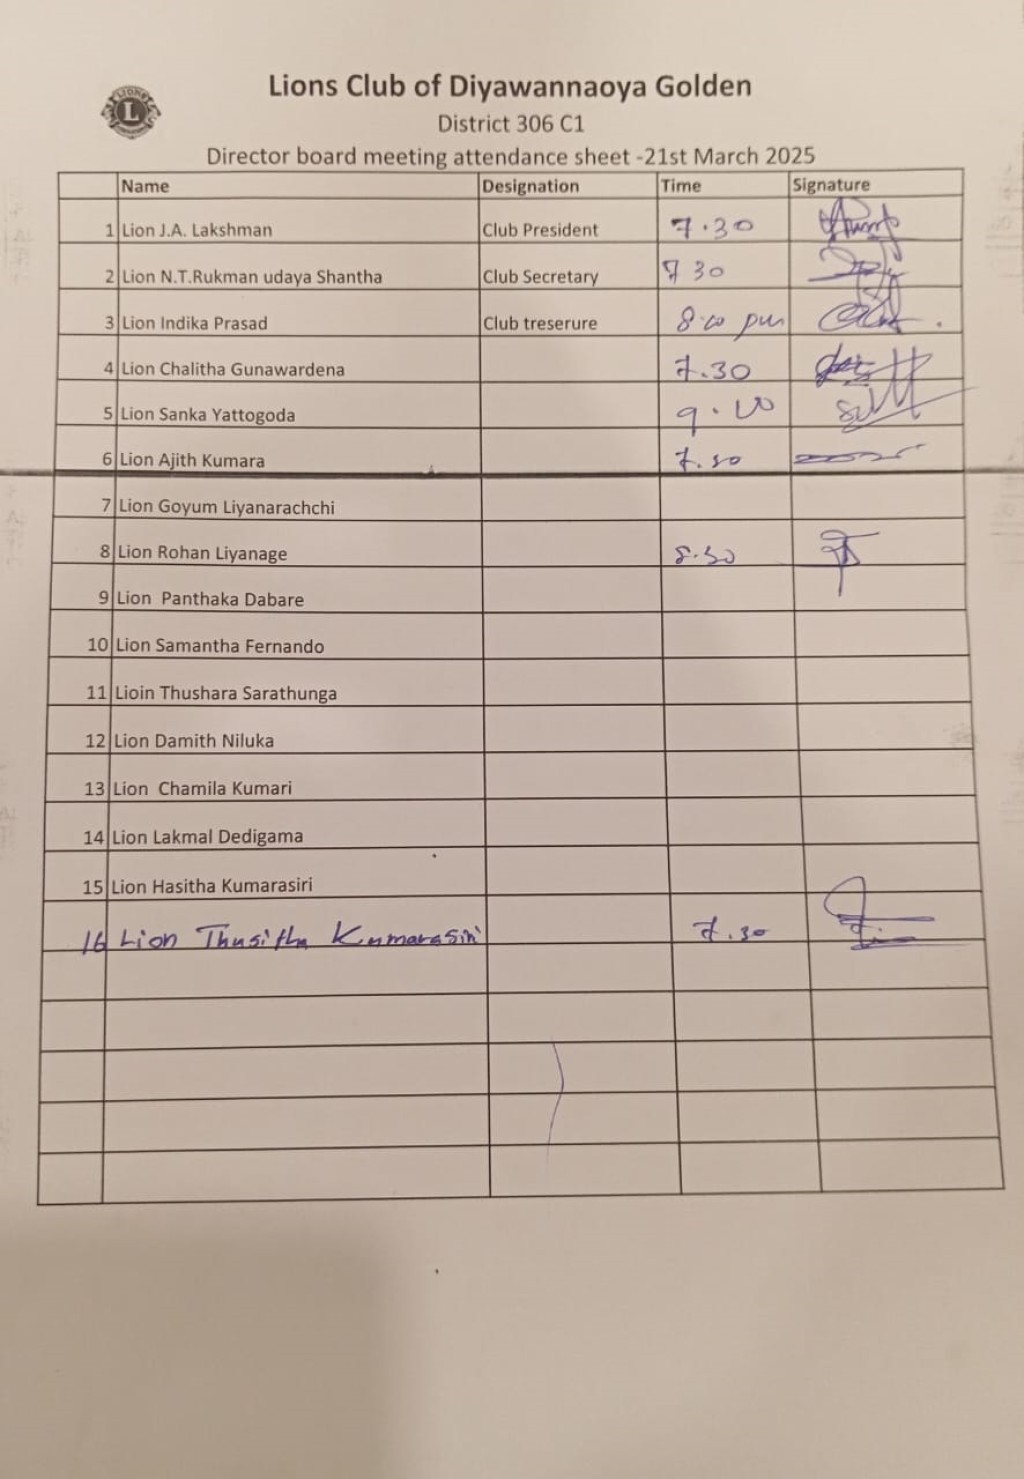 Lions Club of Diyawannaoya Golden
District 306 C1
Director board meeting attendance sheet -21st March 2025
Name Designation Time Signature
1 Lion J.A. Lakshman Club President 7.30
2 Lion N.T.Rukman udaya Shantha Club Secretary 7 30
3 Lion Indika Prasad Club treserure 8.00 pm
4 Lion Chalitha Gunawardena 7.30
5 Lion Sanka Yattogoda 9.00
6 Lion Ajith Kumara 7.30
7 Lion Goyum Liyanarachchi
8 Lion Rohan Liyanage 8.30
9 Lion Panthaka Dabare
10 Lion Samantha Fernando
11 Lioin Thushara Sarathunga
12 Lion Damith Niluka
13 Lion Chamila Kumari
14 Lion Lakmal Dedigama
15 Lion Hasitha Kumarasiri
16 Lion Thusitha Kumarasiri 7.30